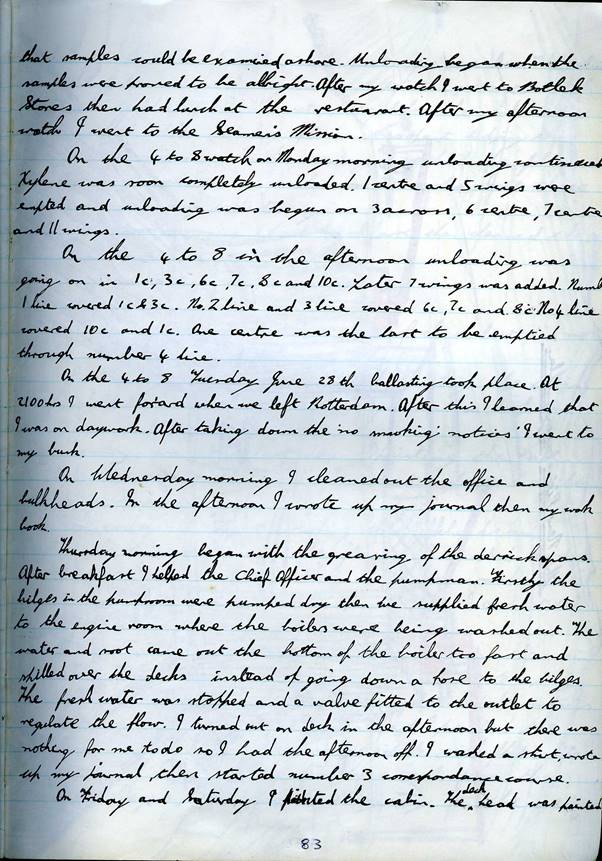 that samples could be examined ashore. Unloading began when the
samples were proved to be allright. After my watch I went to Botlek
Stores then had lunch at the restuarant. After my afternoon
watch I went to the Seamen's Mission.
On the 4 to 8 watch on Monday morning unloading continued.
Xylene was soon completely unloaded. 1 centre and 5 wings were
emptied and unloading was begun on 3 across, 6 centre, 7 centre
and 11 wings.
On the 4 to 8 in the afternoon unloading was
going on in 1c, 3c, 6c, 7c, 8c and 10c. Later 7 wings was added. Numb
1 line covered 1c & 3c. No. 2 line and 3 line covered 6c, 7c and 8c. No 4 line
covered 10c and 1c. One centre was the last to be emptied
through number 4 line.
On the 4 to 8 Tuesday June 28th ballasting took place. At
2100hs I went forard when we left Rotterdam. After this I learned that
I was on daywork. After taking down the 'no smoking' notices I went to
my bunk.
On Wednesday morning I cleaned out the office and
bulkheads. In the afternoon I wrote up my journal then my work
book.
Thursday morning began with the greasing of the derrick spans.
After breakfast I helped the Chief Officer and the pumpman. Firstly the
bilges in the pumproom were pumped dry then we supplied fresh water
to the engine room where the boilers were being washed out. The
water and soot came out the bottom of the boiler too fast and
spilled over the decks instead of going down a hose to the bilges.
The fresh water was stopped and a valve fitted to the outlet to
regulate the flow. I turned out on deck in the afternoon but there was
nothing for me to do so I had the afternoon off. I washed a shirt, wrote
up my journal, then started number 3 correspondance course.
On Friday and Saturday I painted the cabin. The deck head was painted
83